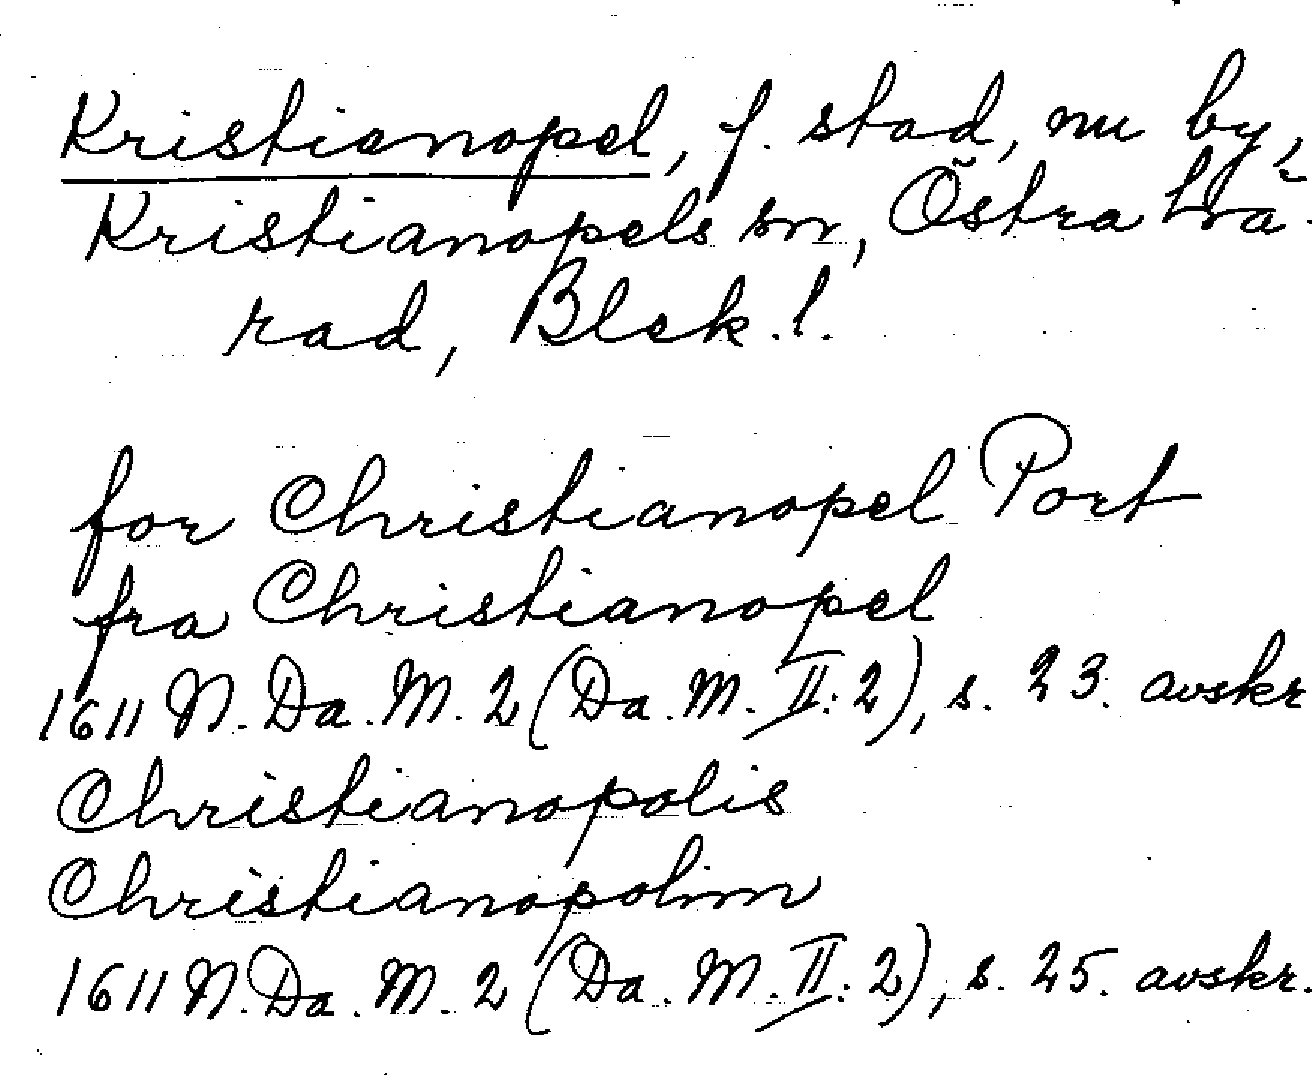 Kristianopel, f. stad, nu by,
Kristianopels sn, Östra hä-
rad, Blek. l.
for Christianopel Port
fra Christianopel
1611 N. Da. M. 2 (Da. M. II: 2), s. 23. avskr
Christianopolis
Christianopolim
1611 N. Da. M. 2 (Da. M. II: 2), s. 25. avskr.